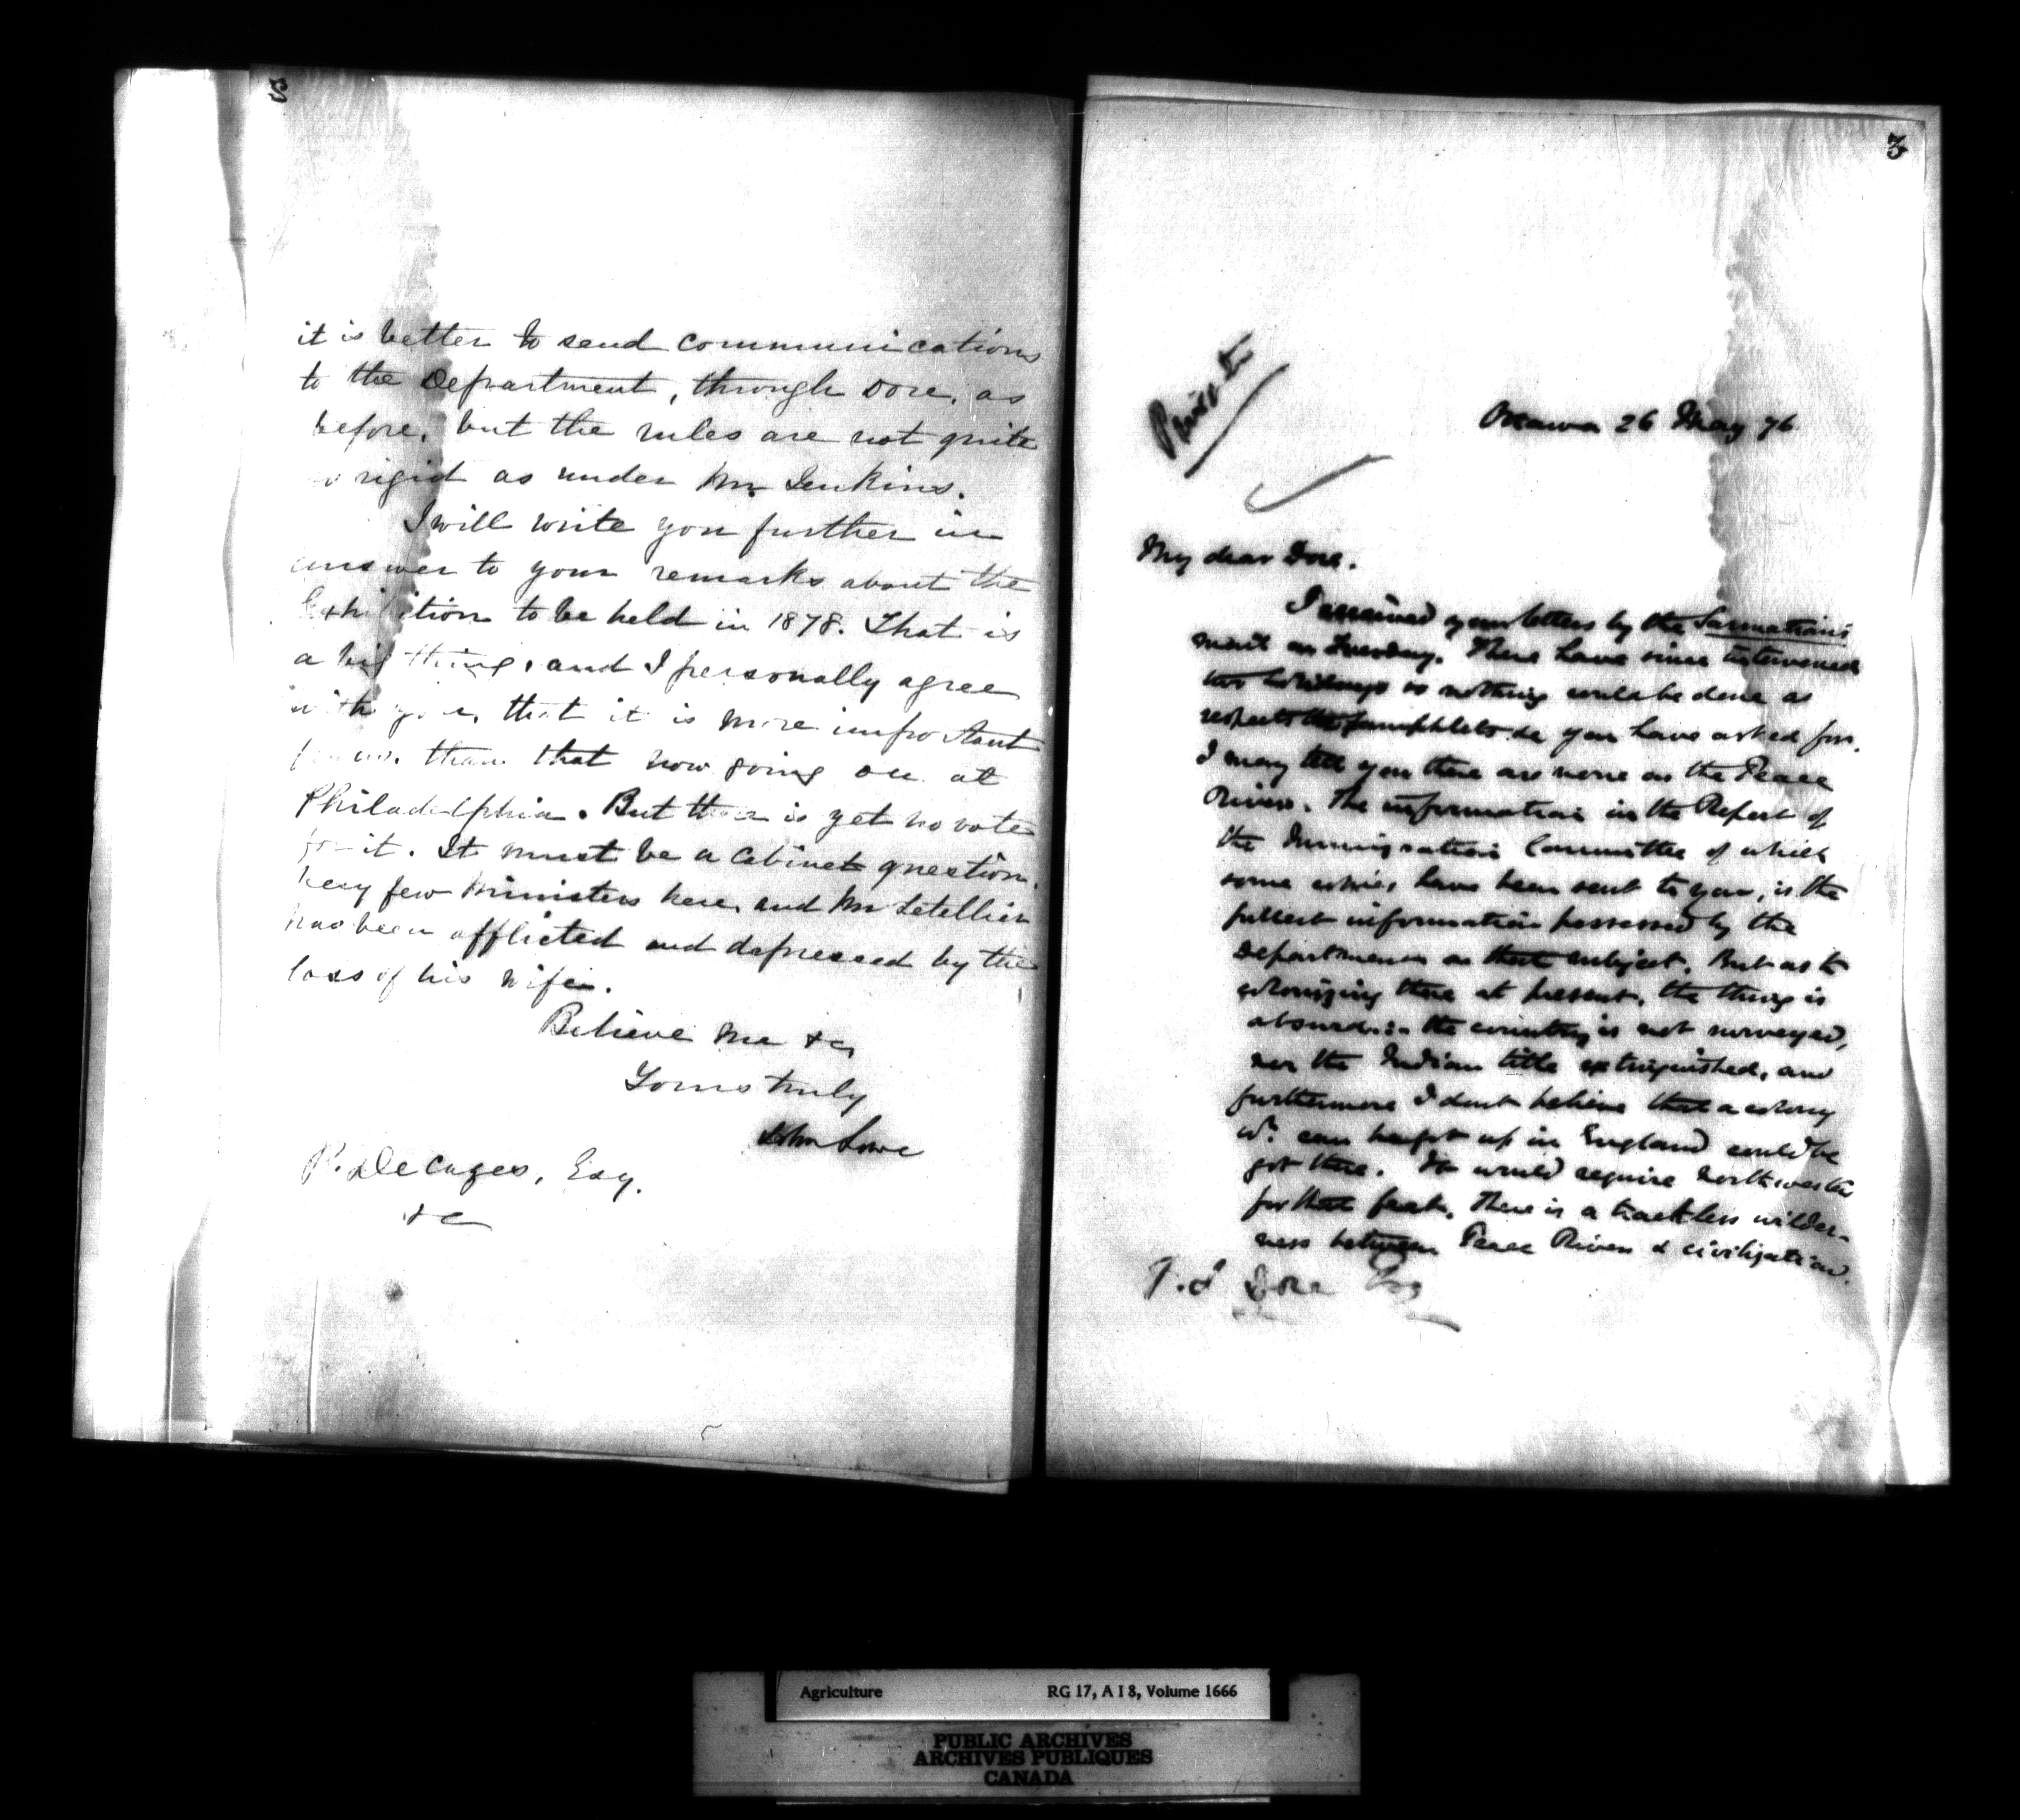 it is better to send communications
to the Department, through Dore, as
before, but the rules are not quite
so rigid as under Mr Jenkins.
I will write you further in
answer to your remarks about the
Exhibition to be held in 1878. That is
a big thing, and I personally agree
with you, that it is more important
for us, than that now going on at
Philadelphia. But there is yet no vote
for it. It must be a Cabinet question.
Very few Ministers here, and Mr Letellier
has been afflicted and depressed by the
loss of his wife.
Believe me &c
Yours truly
John Lowe
P. De Cazes, Esq.
&c
3
Private
Ottawa 26 May 76
My dear Dore.
I received your letters by the Sarmatian's
mail on Tuesday. There have since intervened
two holidays so nothing could be done as
respects the pamphlets &c you have asked for.
I may tell you there are none on the Peace
River. The information in the Report of
the Immigration Committee of which
some copies have been sent to you, is the
fullest information possessed by the
Department on that subject. But as to
colonizing there at present, the thing is
absurd:- the country is not surveyed,
nor the Indian title extinguished, and
furthermore I dont believe that a colony
wh. can be got up in England could be
got there. It would require
for that feat. There is a trackless wilder-
ness between Peace River & civilization.
T. J Dore Esq
Agriculture RG 17, A I 8, Volume 1666
PUBLIC ARCHIVES
ARCHIVES PUBLIQUES
CANADA